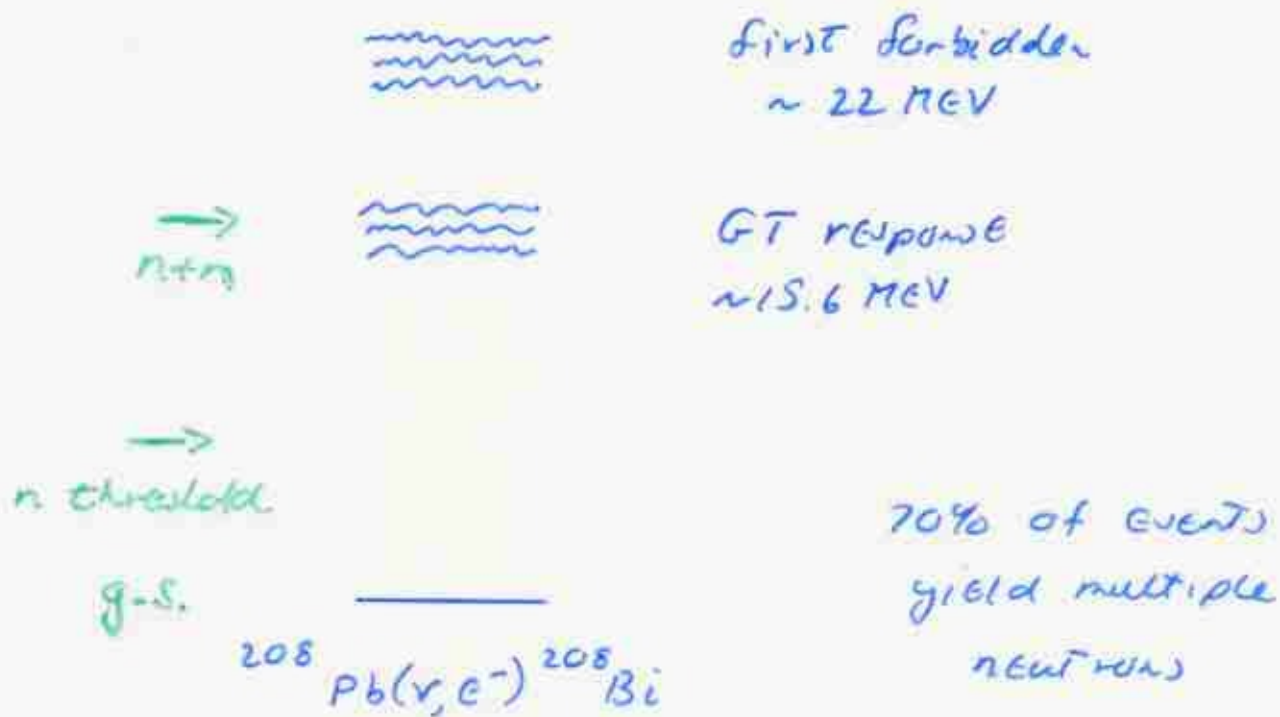 first forbidden
~ 22 MEV
n+n
GT response
~15.6 MEV
n threshold
g.s.
70% of events
yield multiple
neutrons
208Pb(ν,e-)208Bi